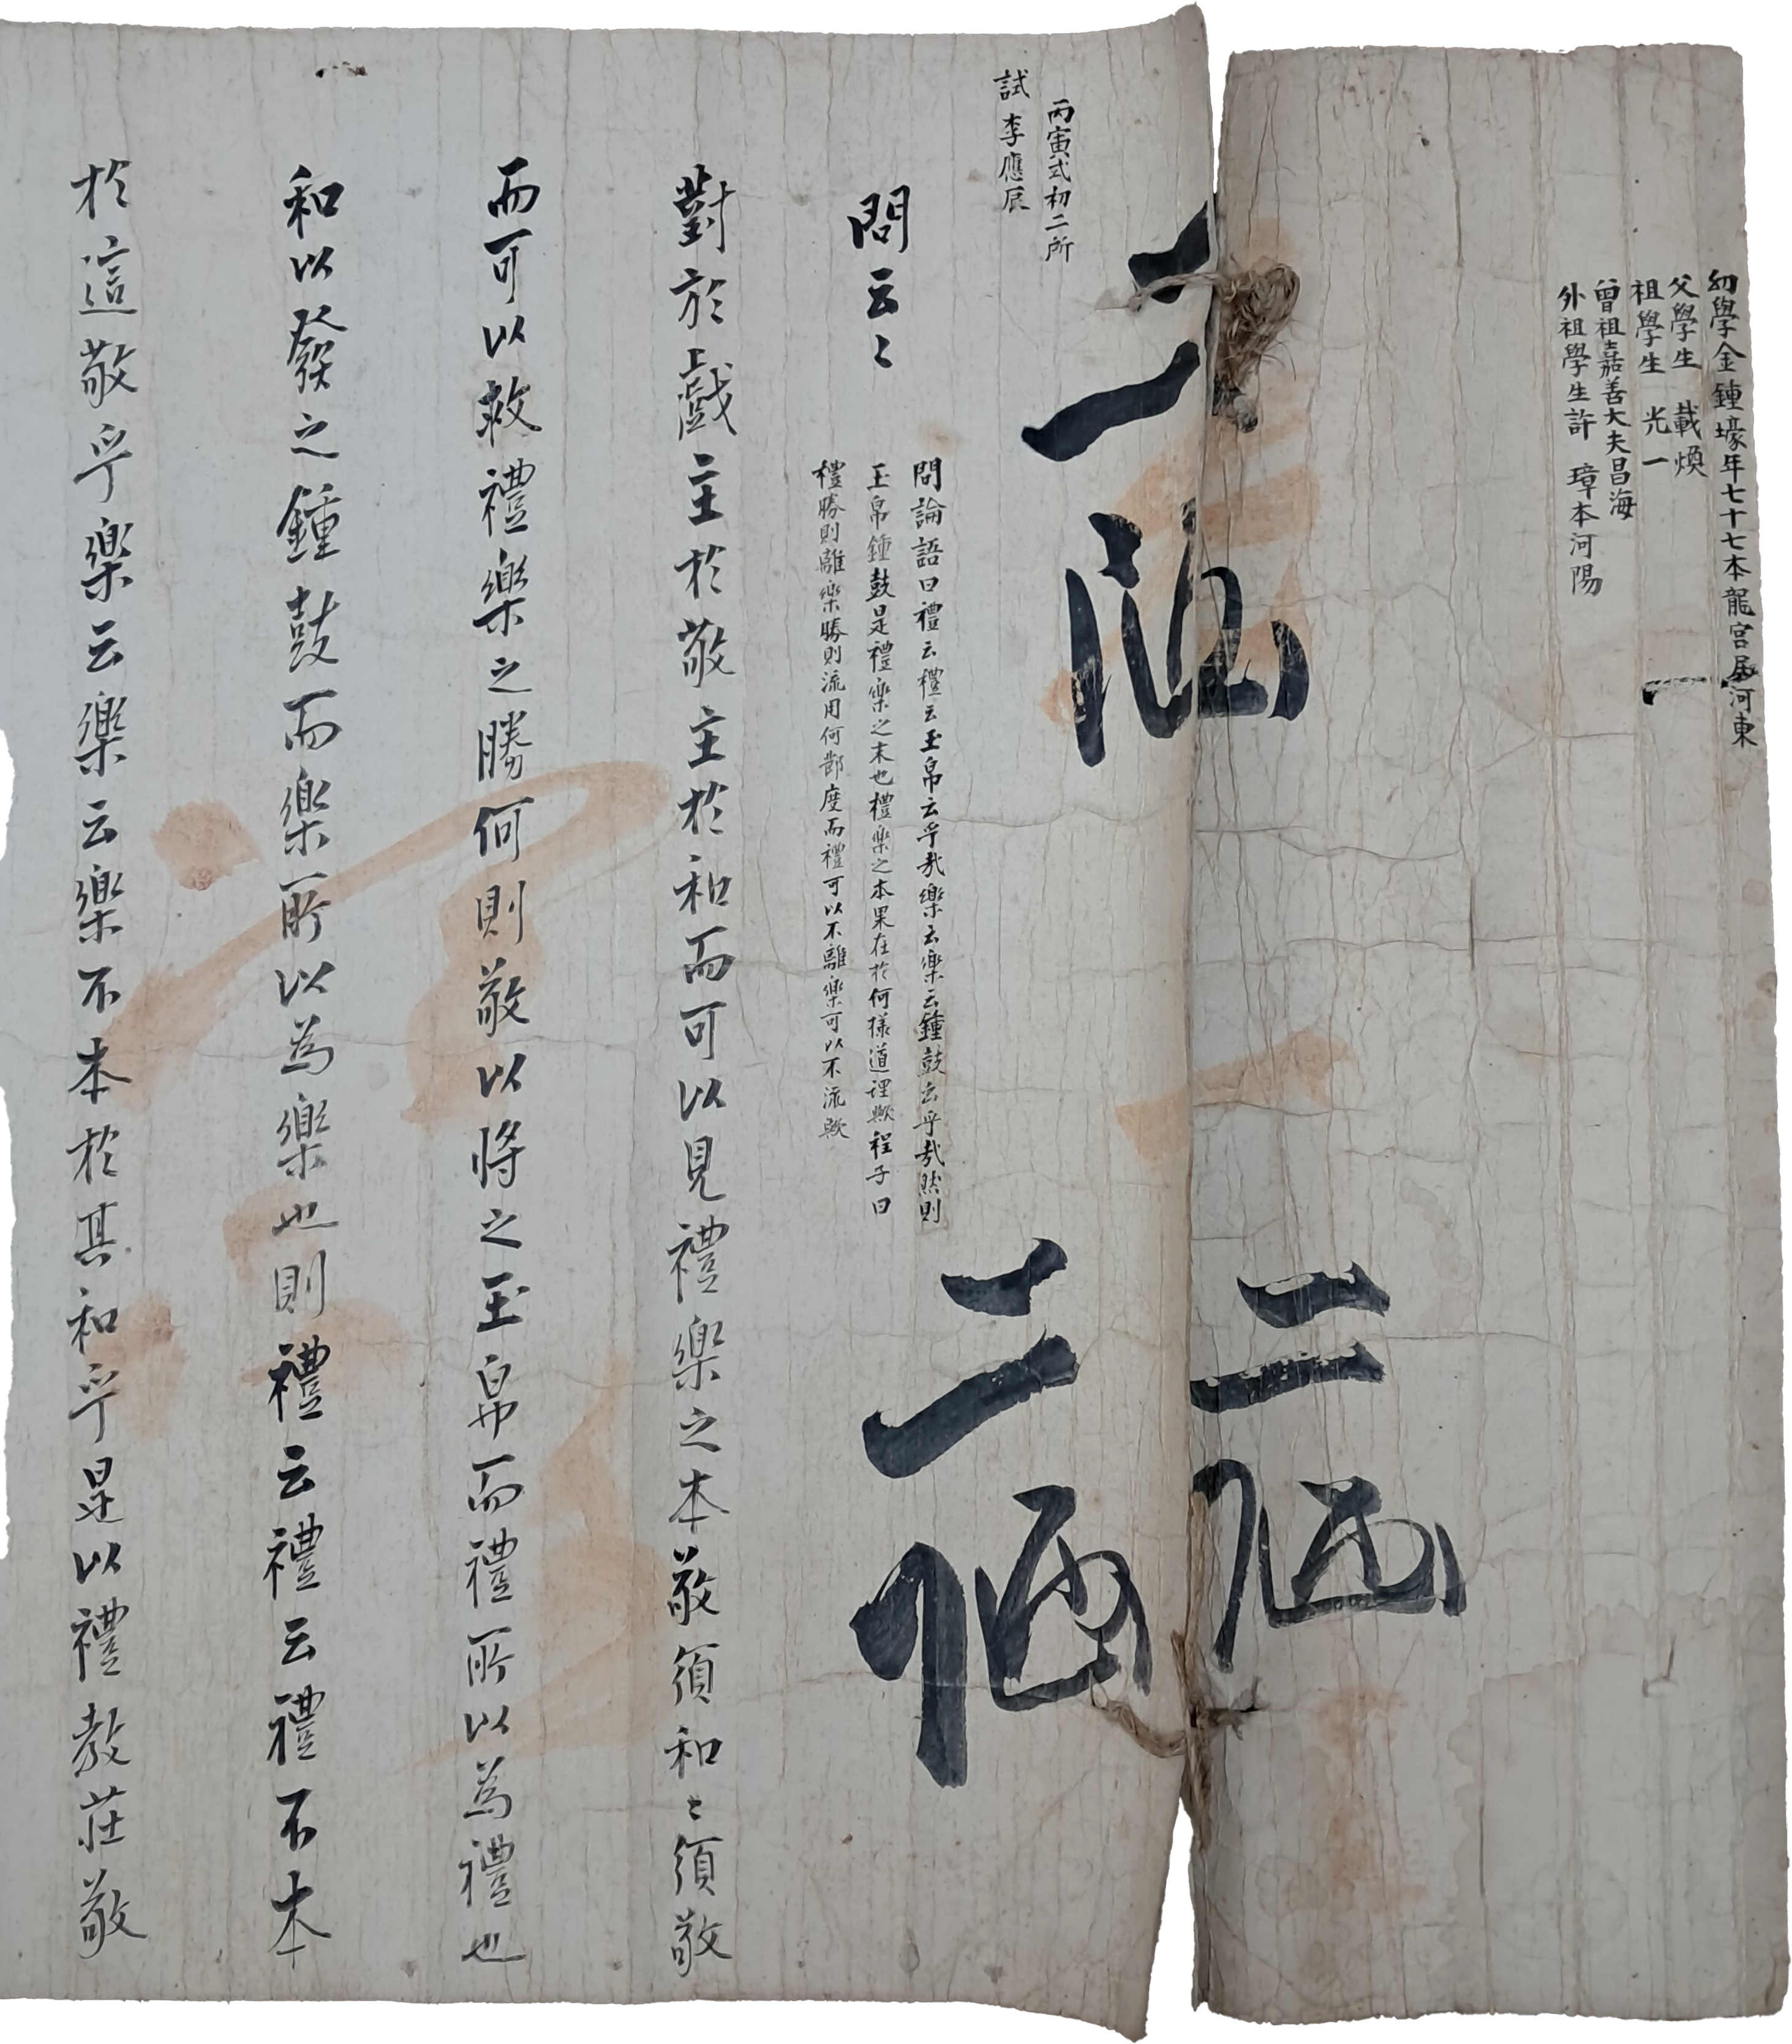 幼學金鍾壕年七十七本龍宮居河東
父學生 載煥
祖學生 光一
曾祖嘉善大夫昌海
外祖學生許 璋本河陽
二
二
丙寅式初二所
試 李應辰
問論語曰禮云禮云玉帛云乎哉樂云樂云鍾鼓云乎哉然則
玉帛鍾鼓是禮樂之末也禮樂之本果在於何樣道理歟程子曰
禮勝則離樂勝則流用何節度而禮可以不離樂可以不流歟
問云〻
對於戲主於敬主於和而可以見禮樂之本敬須和〻須敬
而可以救禮樂之勝何則敬以將之玉帛而禮所以為禮也
和以發之鍾鼓而樂所以為樂也則禮云禮云禮不本
於這敬乎樂云樂云樂不本於其和乎是以禮教莊敬